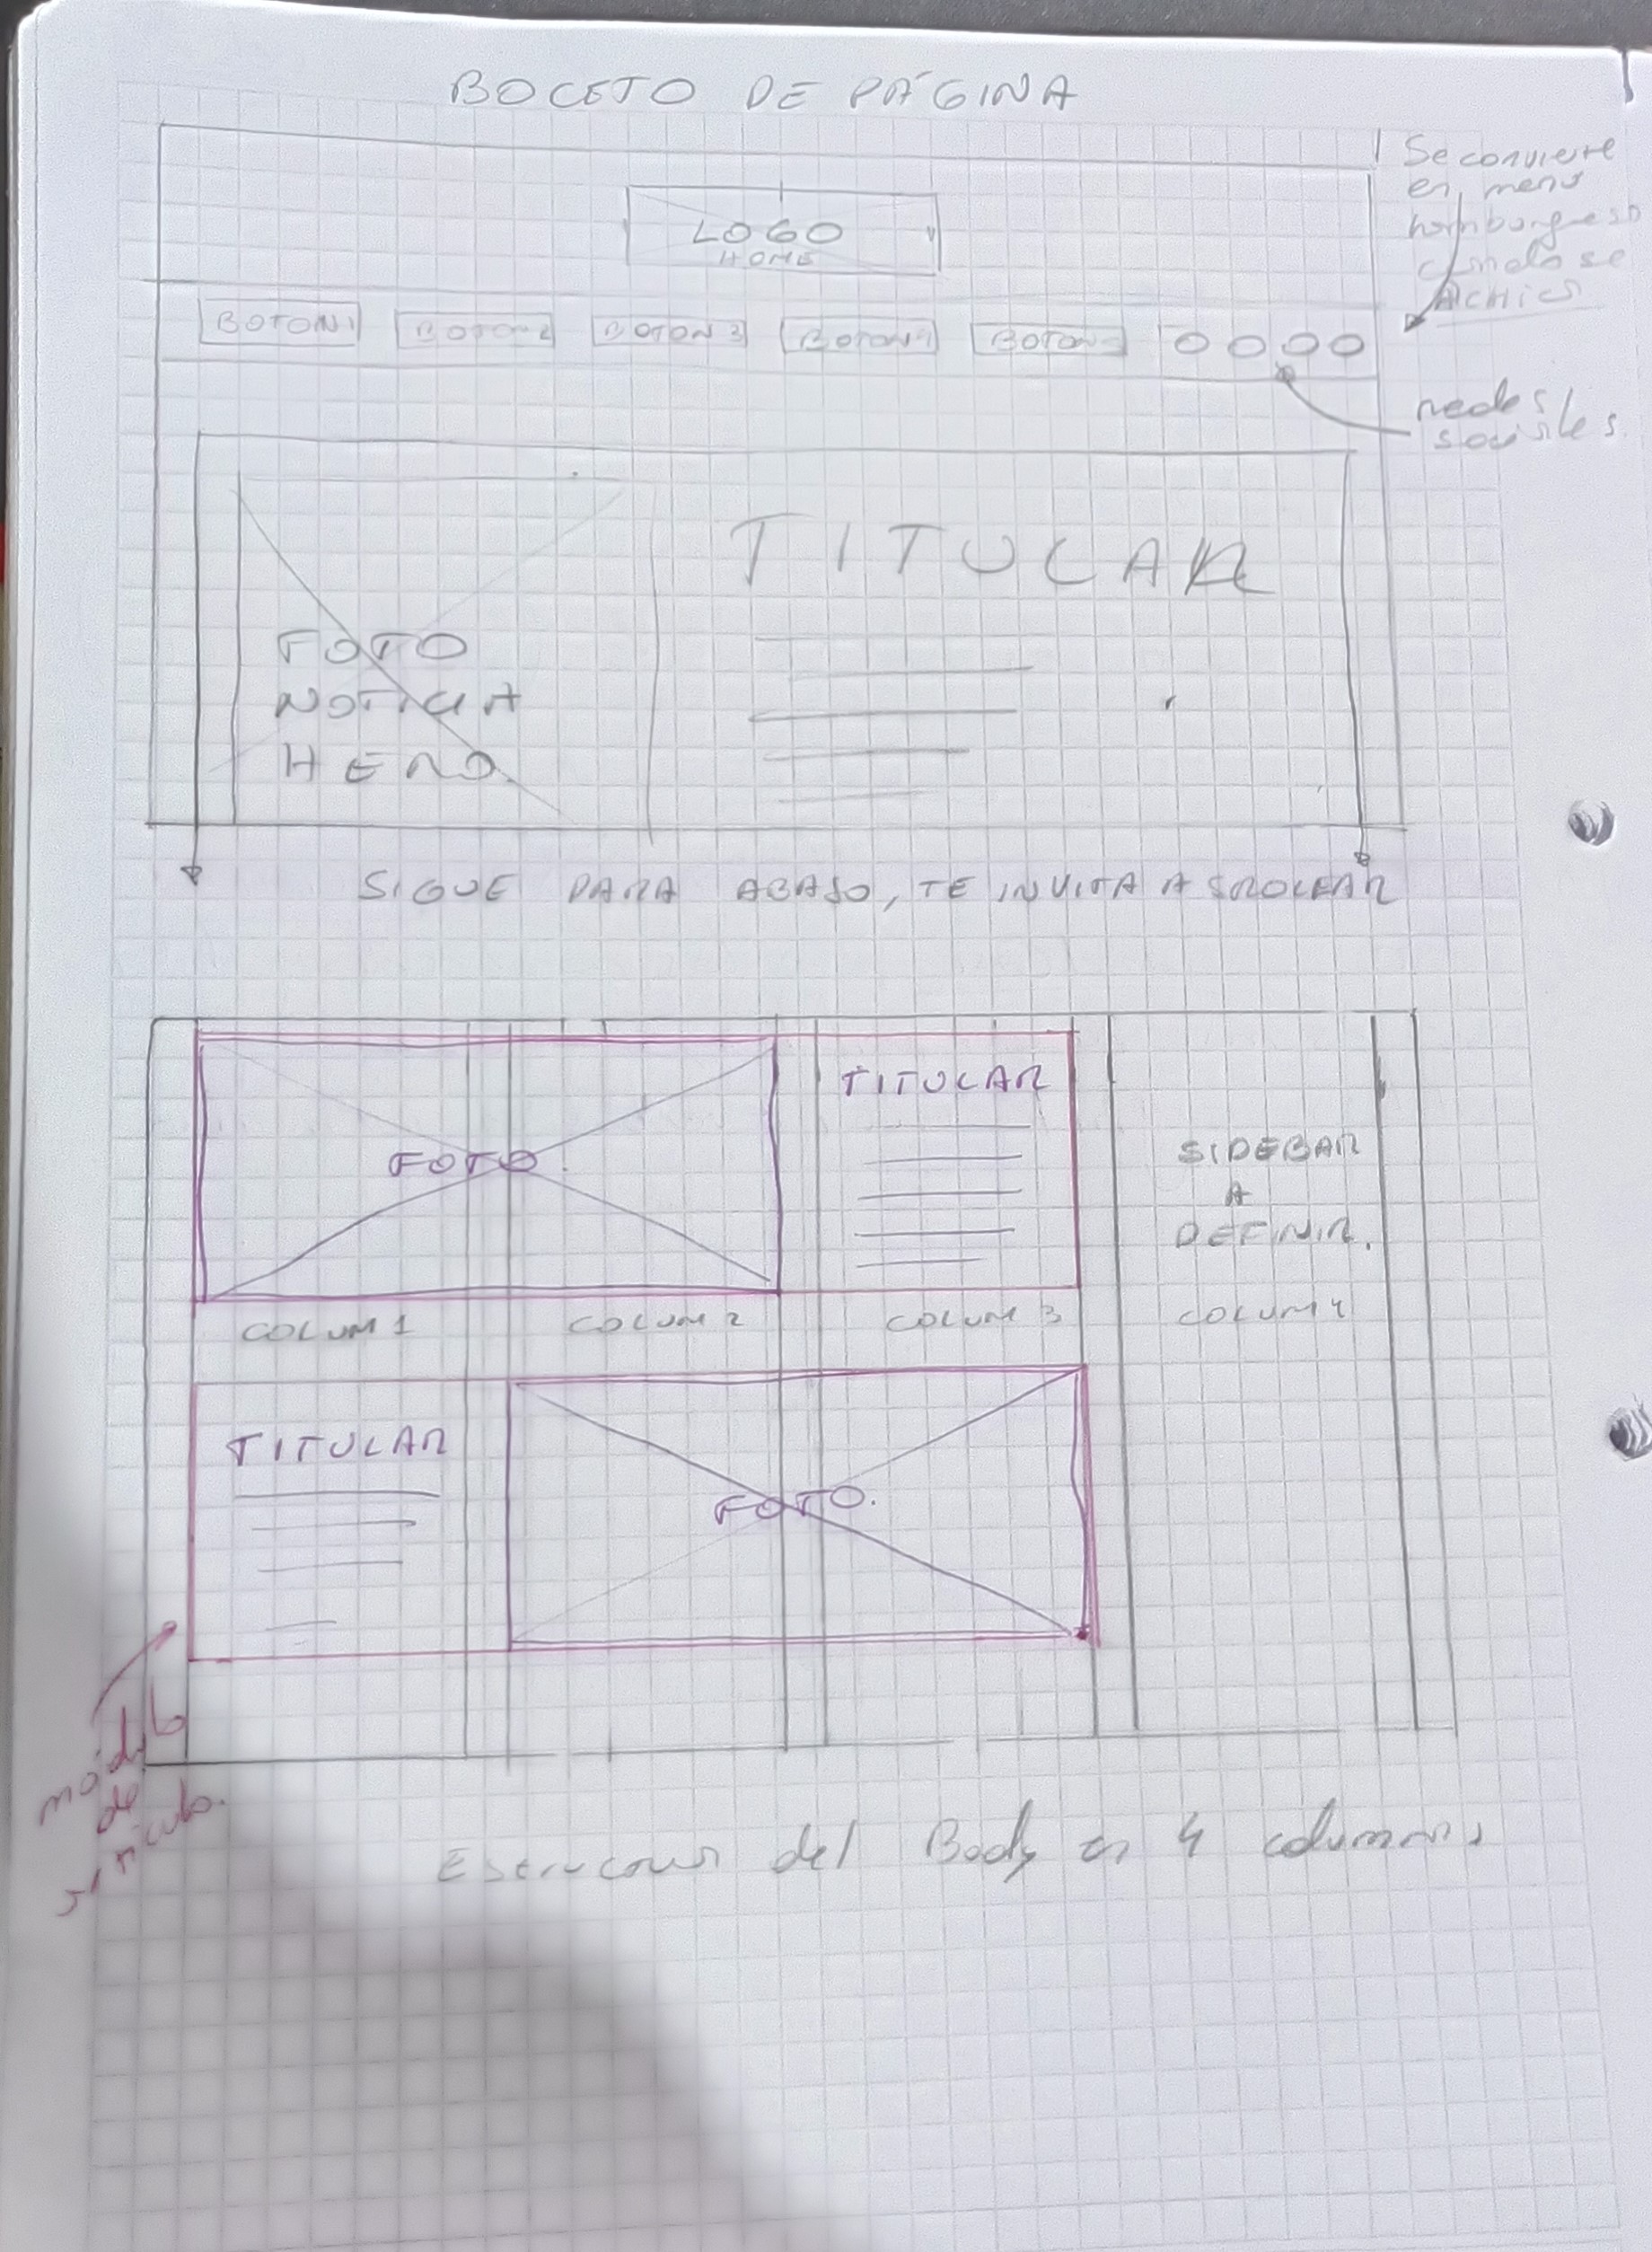 BOCETO DE PÁGINA
Se convierte
en menú
hamburguesa
cuando se
Achica
LOGO
HOME
BOTON 1 BOTON 2 BOTON 3 BOTON 4 BOTON
redes
sociales.
TITULAR
FOTO
NOTICIA
HERO
SIGUE PARA ABAJO, TE INVITA A SROLEAR
FOTO.
TITULAR
SIDEBAR
A
DEFINIR.
COLUM 1 COLUM 2 COLUM 3 COLUM 4
TITULAR
FOTO.
módulo
de
artículo.
Estructura del Body en 4 columnas